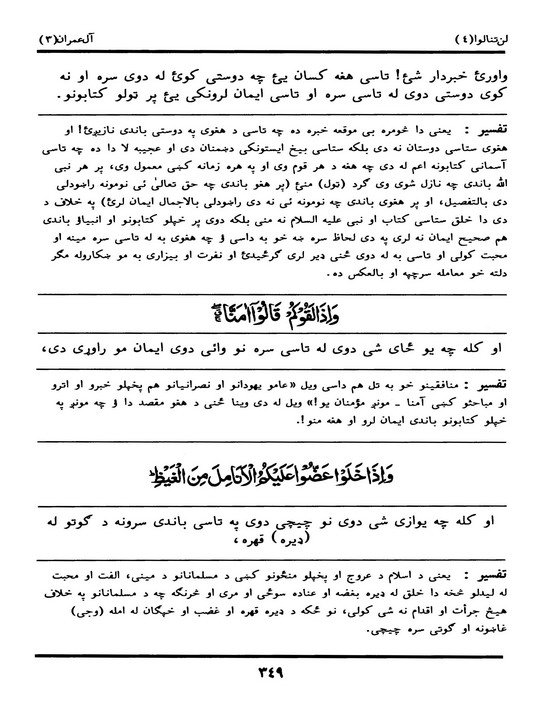 لن تنالوا(٤) آل عمران(٣)
واورئ خبردار شئ! تاسی هغه کسان یئ چه دوستی کوئ له دوی سره او نه
کوی دوستی دوی له تاسی سره او تاسی ایمان لرونکی یئ پر ټولو کتابونو.
تفسیر : یعنی دا څومره بی موقعه خبره ده چه تاسی د هغوی په دوستی باندی نازیږئ! او
هغوی ستاسی دوستان نه دی بلکه ستاسی بیخ ایستونکی دښمنان دی او عجیبه لا دا ده چه تاسی
آسمانی کتابونه اعم له دی چه هغه د هر قوم وی او په هره زمانه کښی معمول وی، پر هر نبی
الله باندی چه نازل شوی وی گرد (ټول) منئ (پر هغو باندی چه حق تعالیٰ ئی نومونه راښودلی
دی بالتفصیل، او پر هغوی باندی چه نومونه ئی نه دی راښودلی بالاجمال ایمان لرئ) په خلاف د
دی دا خلق ستاسی کتاب او نبی علیه السلام نه منی بلکه دوی پر خپلو کتابونو او انبیاؤ باندی
هم صحیح ایمان نه لری په دی لحاظ سره ښه خو به داسی ؤ چه هغوی به له تاسی سره مینه او
محبت کولی او تاسی به له دوی څنی ډیر لری گرځیدئ او نفرت او بیزاری به مو ښکاروله مگر
دلته خو معامله سرچپه او بالعکس ده.
وَإِذَا لَقُوكُمْ قَالُوٓا۟ ءَامَنَّا
او کله چه یو ځای شی دوی له تاسی سره نو وائی دوی ایمان مو راوړی دی،
تفسیر : منافقینو خو به تل هم داسی ویل «عامو یهودانو او نصرانیانو هم پخپلو خبرو او اترو
او مباحثو کښی آمنا ـ مونږ مؤمنان یو!» ویل له دی وینا څنی د هغو مقصد دا ؤ چه مونږ په
خپلو کتابونو باندی ایمان لرو او هغه منو!.
وَإِذَا خَلَوْا عَضُّوا عَلَيْكُمُ الْأَنَامِلَ مِنَ الْغَيْظِ
او کله چه یوازی شی دوی نو چیچی دوی په تاسی باندی سرونه د گوتو له
(ډیره) قهره،
تفسیر : یعنی د اسلام د عروج او پخپلو منځونو کښی د مسلمانانو د مینی، الفت او محبت
له لیدلو څخه دا خلق له ډیره بغضه او عناده سوځی او مری او څرنگه چه د مسلمانانو په خلاف
هیڅ جرأت او اقدام نه شی کولی، نو ځکه د ډیره قهره او غضب او خپگان له امله (وجی)
غاښونه او گوتی سره چیچی.
٣٤٩